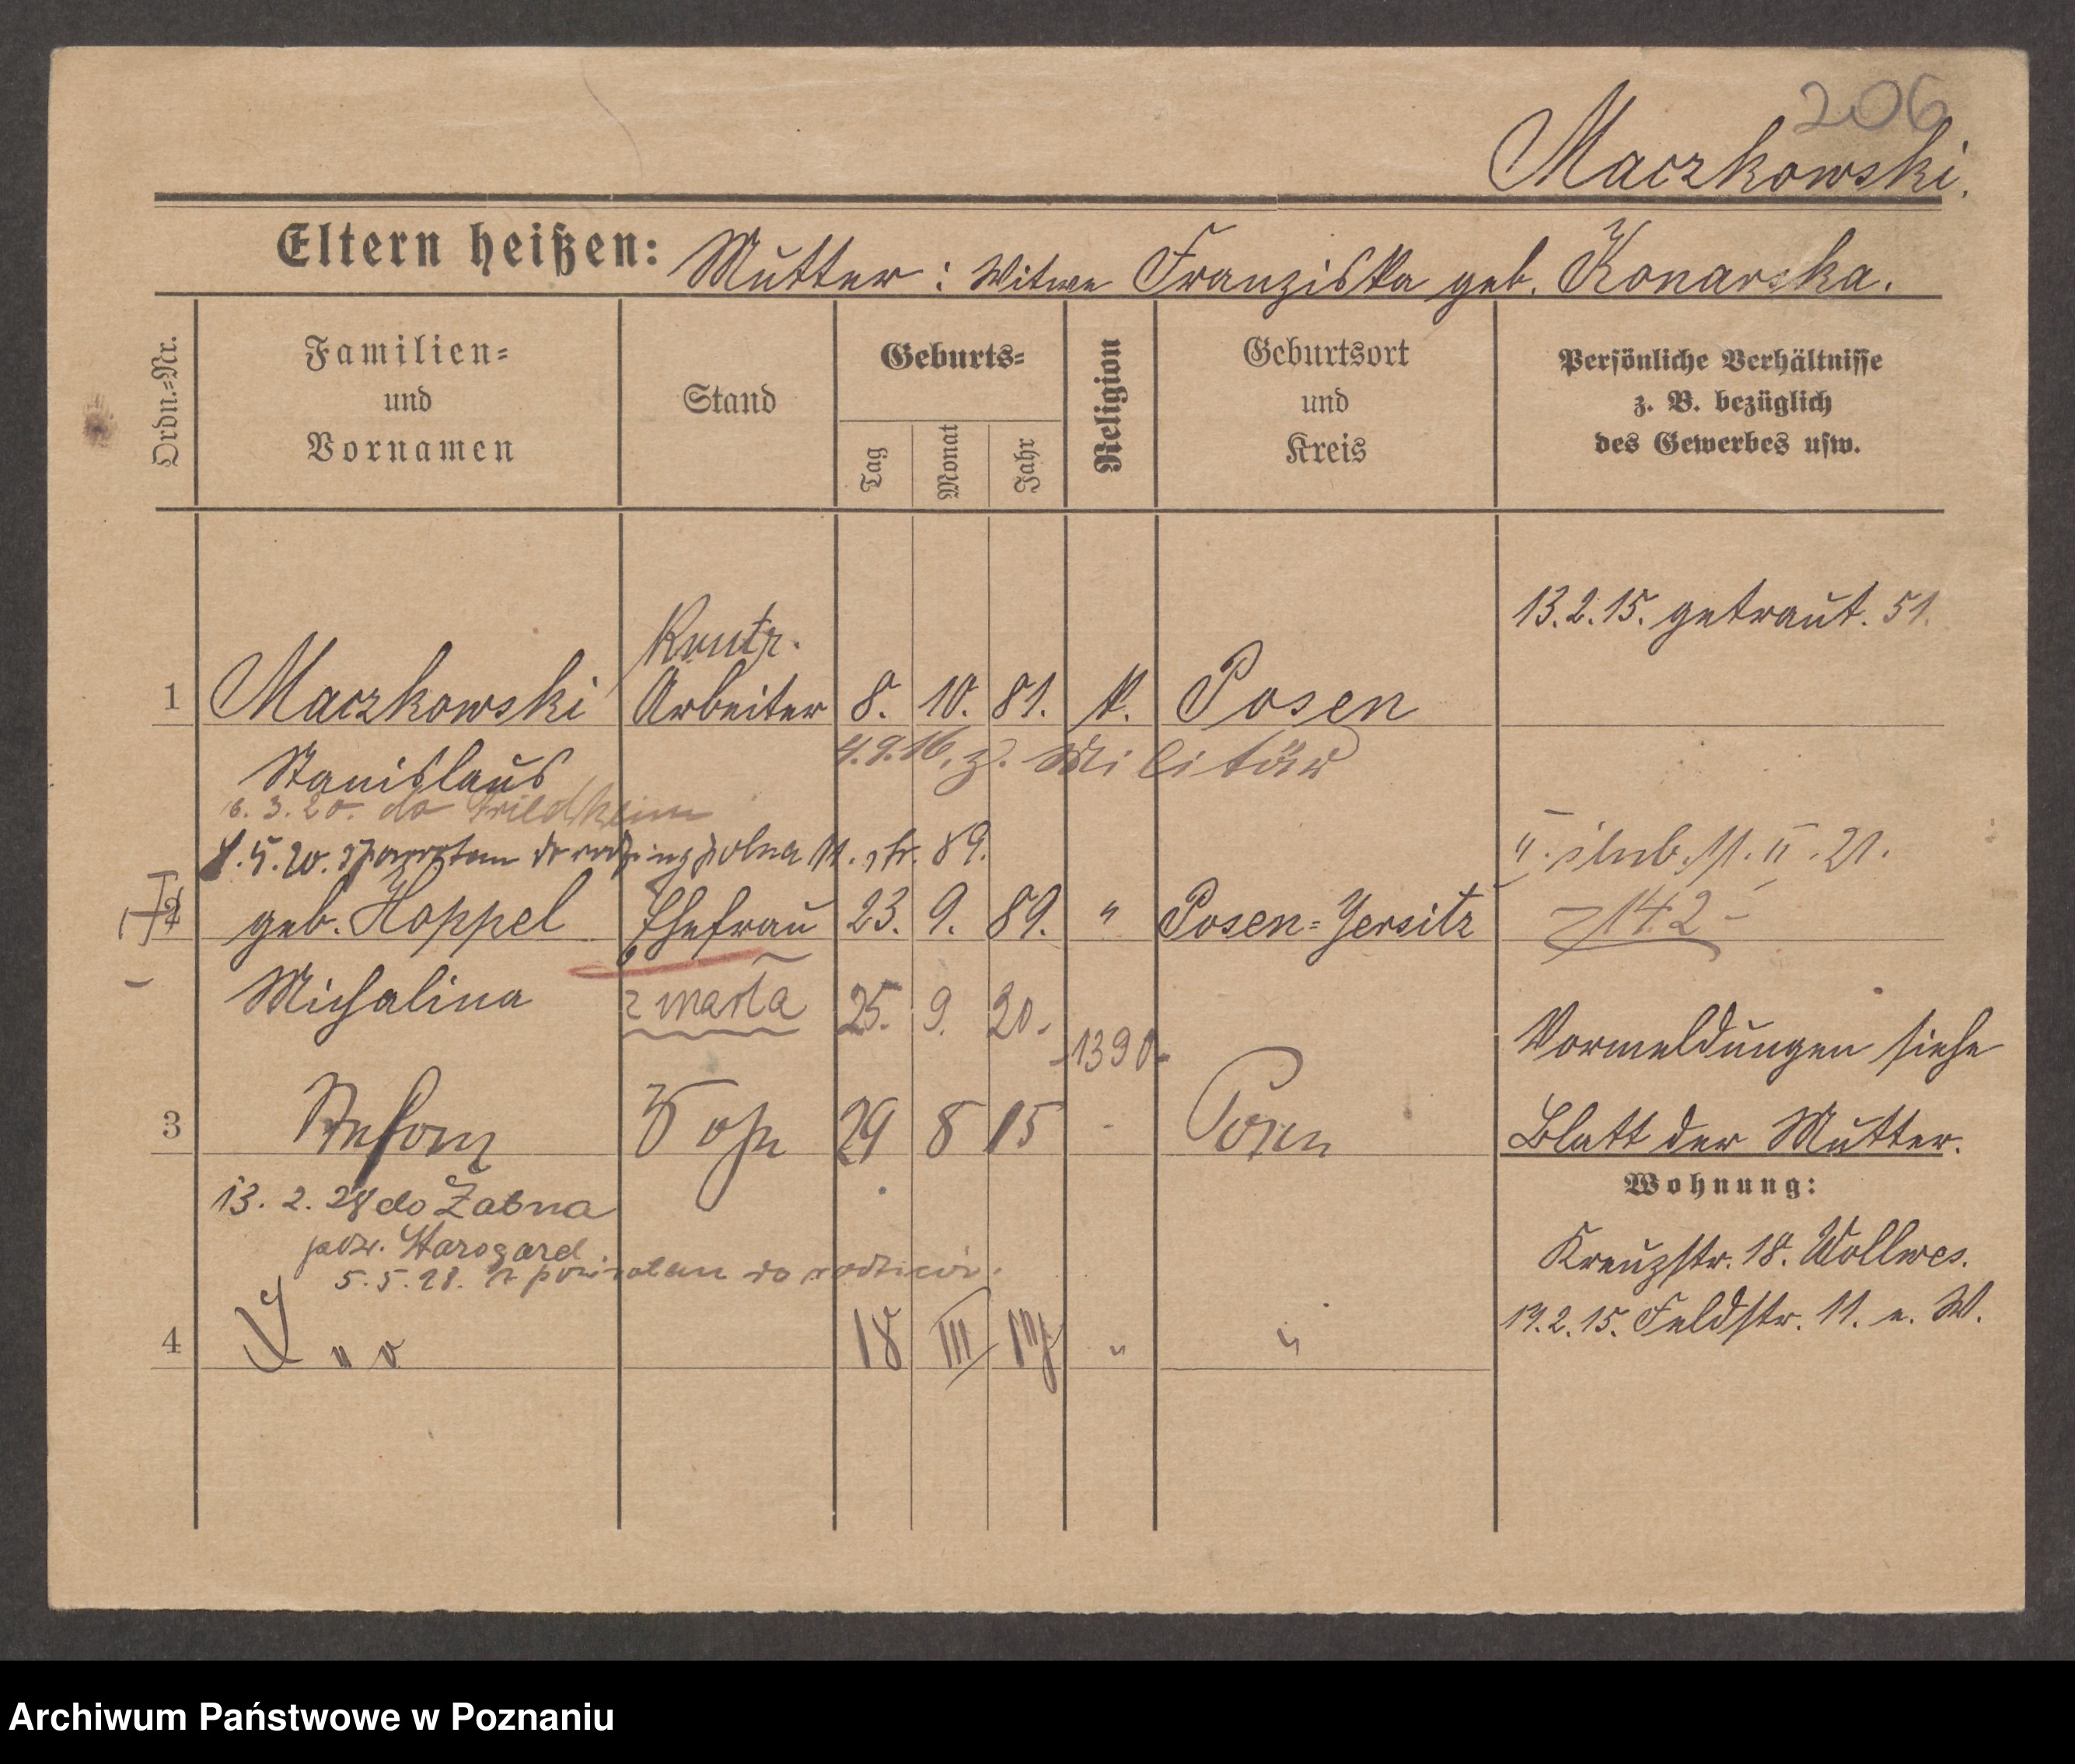 206
Maczkowski.
Eltern heißen: Mutter: Witwe Franziska geb. Konarska.
Ordn.=Nr.
Familien=
und
Vornamen
Stand
Geburts=
Tag
Monat
Jahr
Religion
Geburtsort
und
Kreis
Persönliche Verhältnisse
z. B. bezüglich
des Gewerbes usw.
13.2.15. getraut. 51.
1 Maczkowski Arbeiter 8. 10. 81. k. Posen
Stanislaus
4.9.16. z. Militär
6.3.20. do Friedheim
89.
II. ślub. 11. II. 21.
142
2 geb. Hoppel Ehefrau 23. 9. 89. " Posen=Jersitz
Michalina
zmarła 25. 9. 20.
1390
Vormeldungen siehe
Blatt der Mutter.
3 Stefan 29 8 15 - Posen
13. 2. 28 do Żabna
pow. Starogard.
5.5.28. z powrotem do rodziców.
Wohnung:
Kreuzstr. 18. Wollwes.
19.2.15. Feldstr. 11. e. W.
4 18 III " "
Archiwum Państwowe w Poznaniu